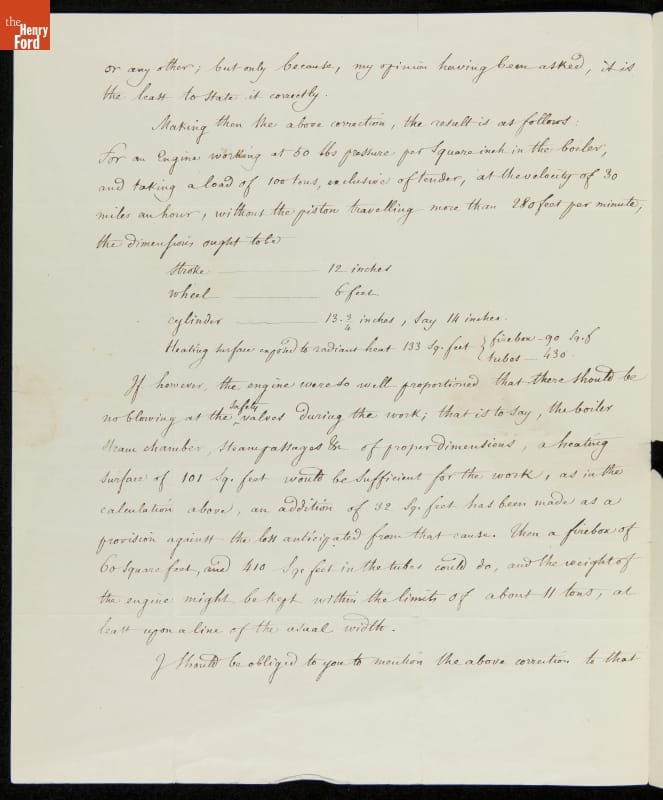 the
Henry
Ford
or any other; but only because, my opinion having been asked, it is
the least to state it correctly.
Making then the above correction, the result is as follows:
For an Engine working at 50 lbs pressure per Square inch in the boiler,
and taking a load of 100 tons, exclusive of tender, at the velocity of 30
miles an hour, without the piston travelling more than 280 feet per minute,
the dimensions ought to be
Stroke — 12 inches
wheel — 6 feet
cylinder — 13 3/4 inches, say 14 inches.
Heating surface exposed to radiant heat 133 Sq. feet { firebox - 90 Sq. f
tubes — 430.
If however, the engine were so well proportioned that there should be
no blowing at the safety valves during the work; that is to say, the boiler
steam chamber, steam passages &c of proper dimensions, a heating
surface of 101 Sq. feet would be sufficient for the work, as in the
calculation above, an addition of 32 Sq. feet has been made as a
provision against the loss anticipated from that cause. Then a firebox of
60 square feet, and 410 Sq. feet in the tubes could do, and the weight of
the engine might be kept within the limits of about 11 tons, at
least upon a line of the usual width.
I should be obliged to you to mention the above correction to that